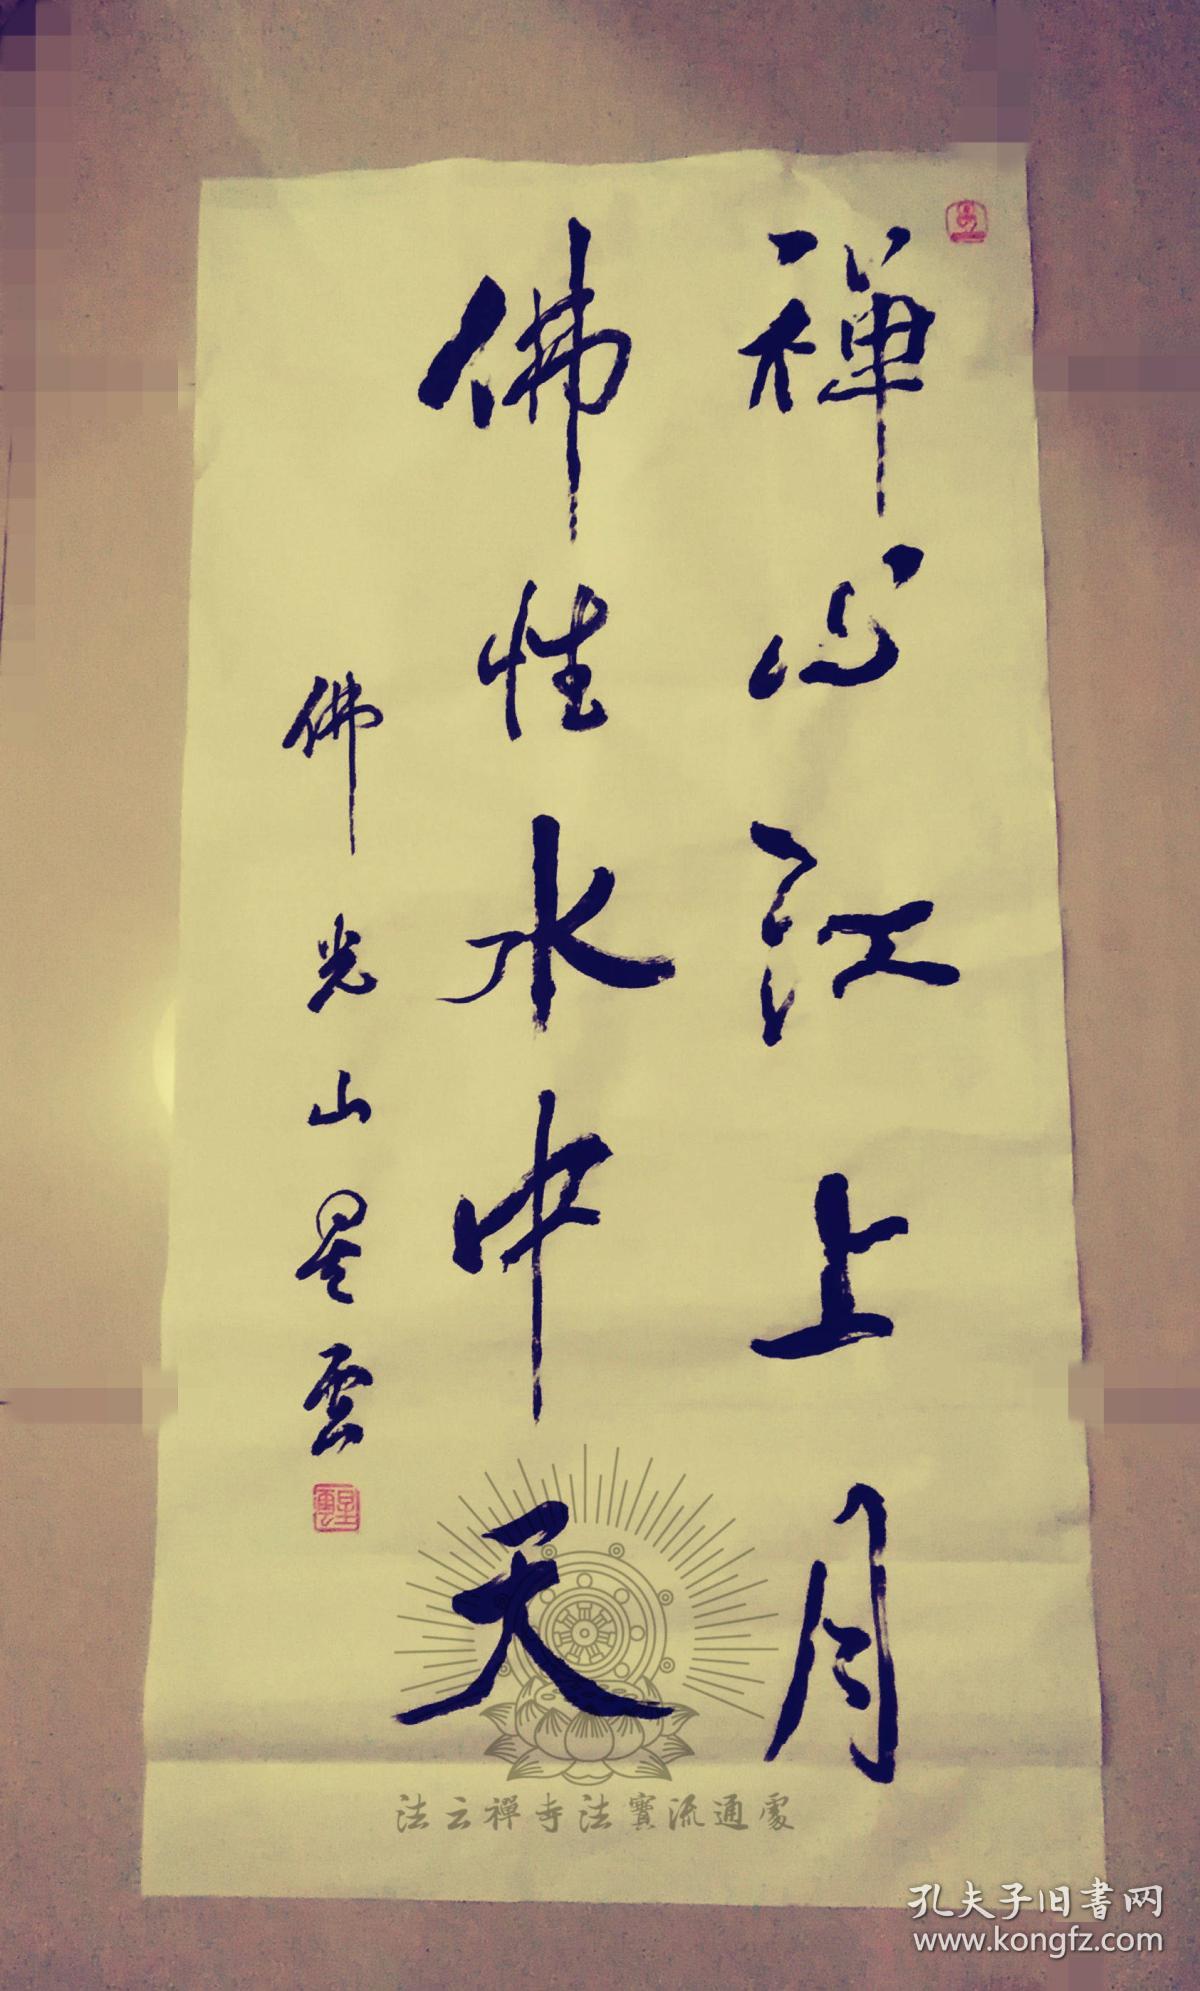 禪心江上月
佛性水中天
佛光山星雲
星雲
法云禪寺法寶流通處
孔夫子旧書网
www.kongfz.com